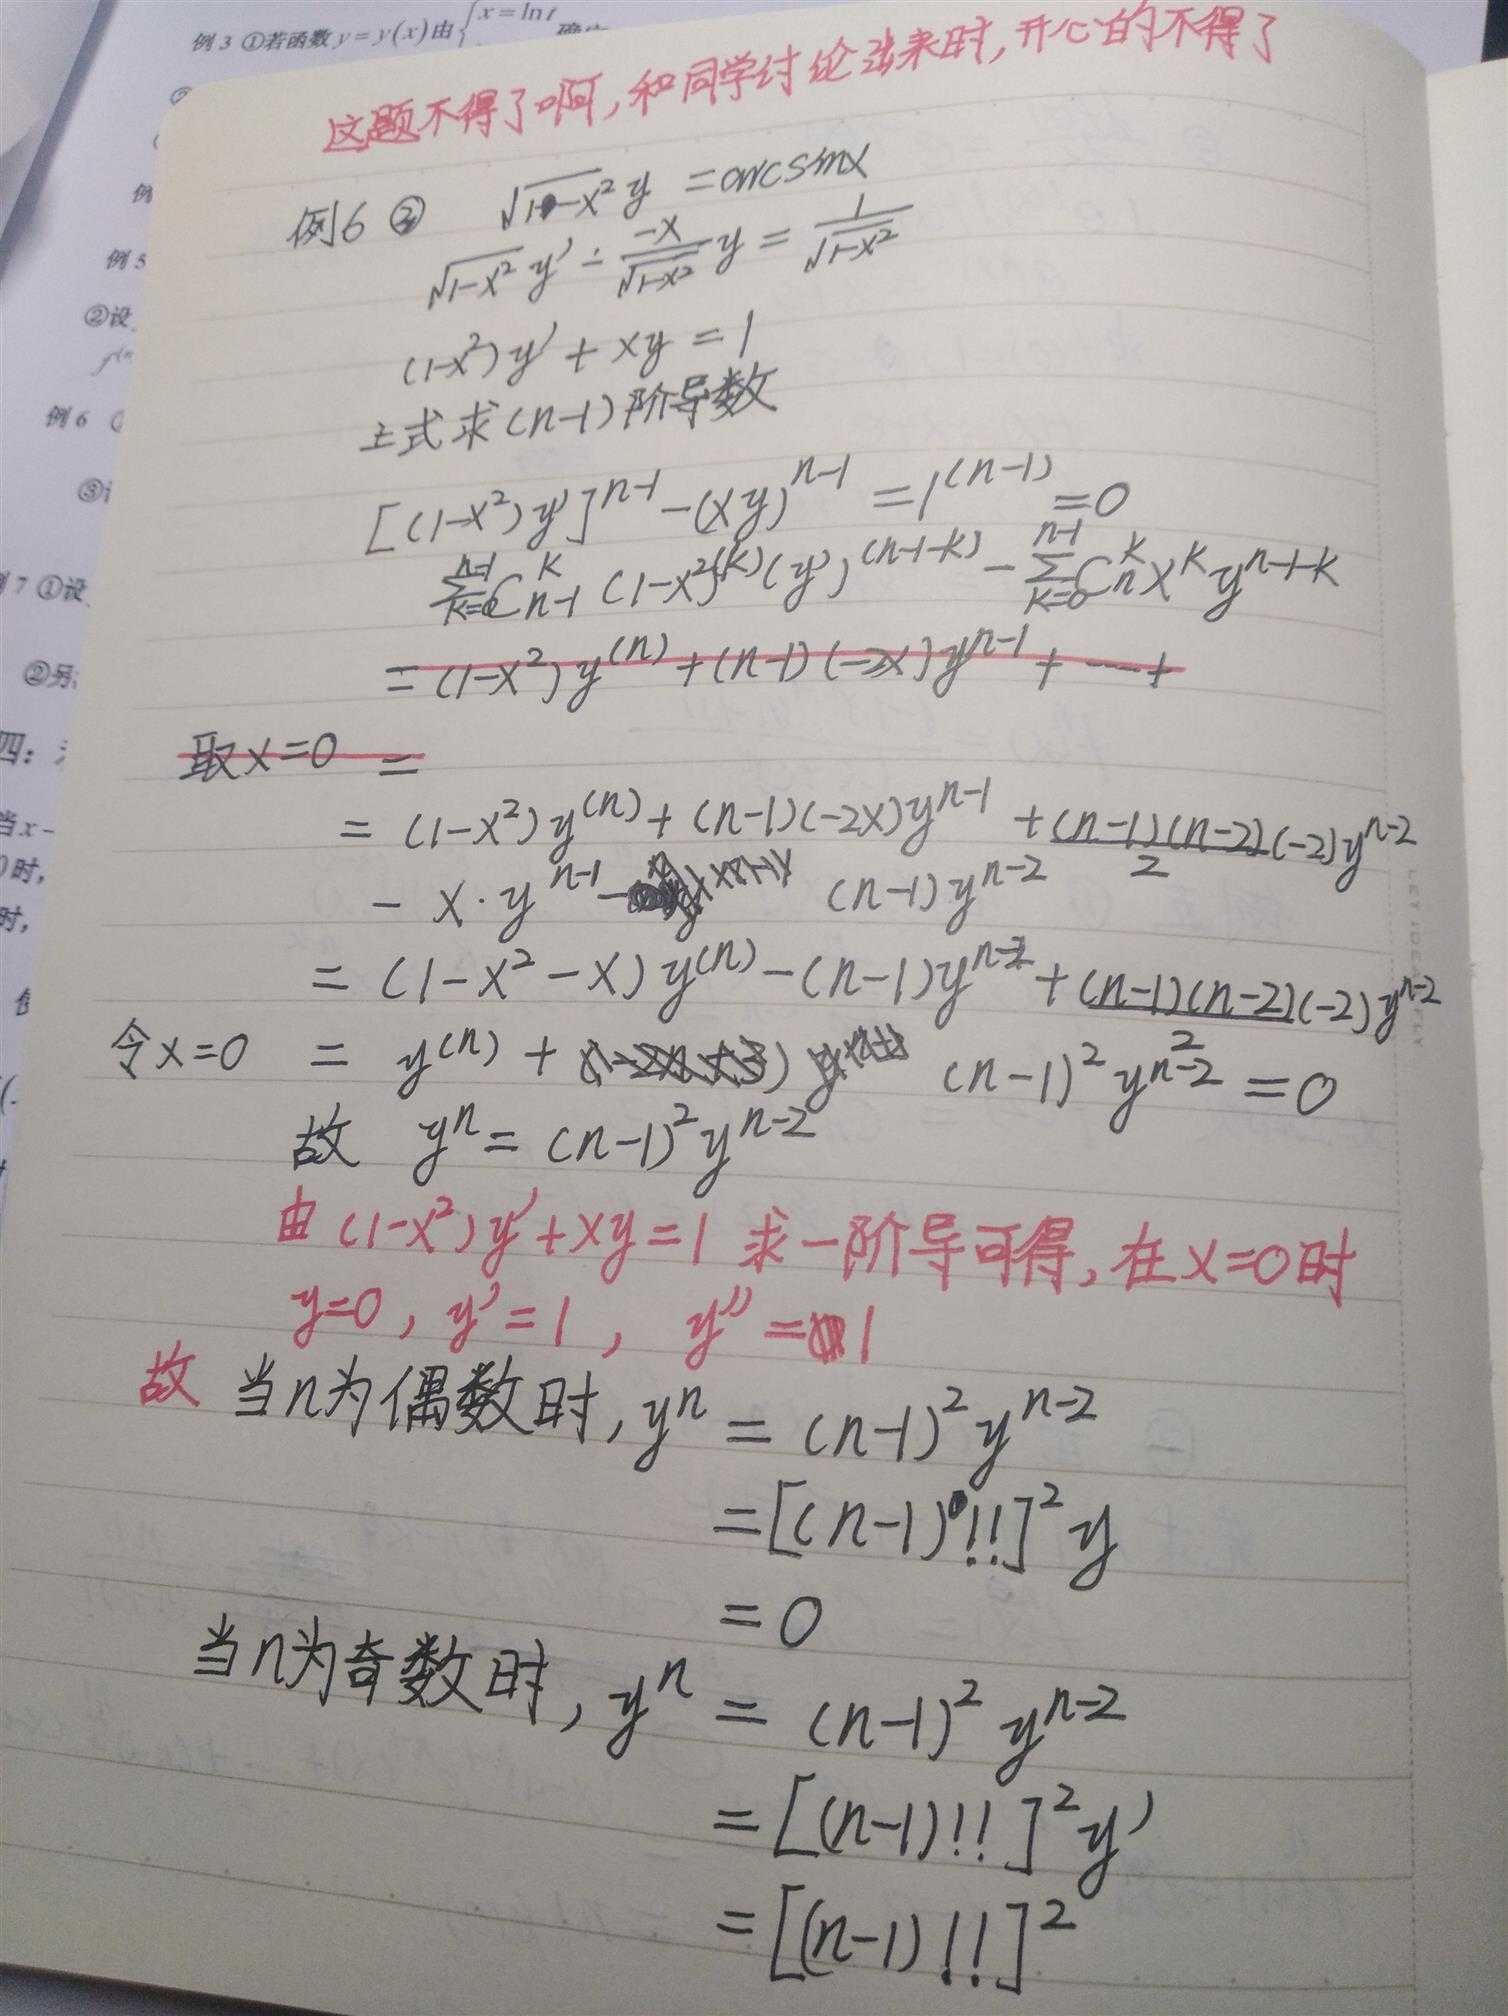 例 3 ①若函数 y = y(x) 由 { x = ln t
这题不得了啊，和同学讨论出来时，开心的不得了
例6 ② √1-x² y = arcsinx
√1-x² y' - -x/√1-x² y = 1/√1-x²
例 5
②设
(1-x²)y' + xy = 1
上式求(n-1)阶导数
例 6
③
[(1-x²)y']^n-1 - (xy)^n-1 = 1^(n-1) = 0
7 ①设
n-1 Σ k=0 C_n-1^k (1-x²)^(k) (y')^(n-1-k) - n-1 Σ k=0 C_n^k x^k y^n-1-k
②另
= (1-x²)y^(n) + (n-1)(-2x)y^n-1 + ---- +
四：
取x=0 =
当 x -
= (1-x²)y^(n) + (n-1)(-2x)y^n-1 + (n-1)(n-2)/2 (-2)y^n-2
时，
- x·y^n-1 - (n-1)y^n-2
时，
= (1-x²-x)y^(n) - (n-1)y^n-2 + (n-1)(n-2)/2 (-2)y^n-2
令x=0 = y^(n) + (n-1)² y^n-2 = 0
故 y^n = (n-1)² y^n-2
由 (1-x²)y' + xy = 1 求一阶导可得，在x=0时
y=0 , y'=1 , y''=1
故 当n为偶数时, y^n = (n-1)² y^n-2
= [(n-1)!!]² y
= 0
当n为奇数时, y^n = (n-1)² y^n-2
= [(n-1)!!]² y'
= [(n-1)!!]²